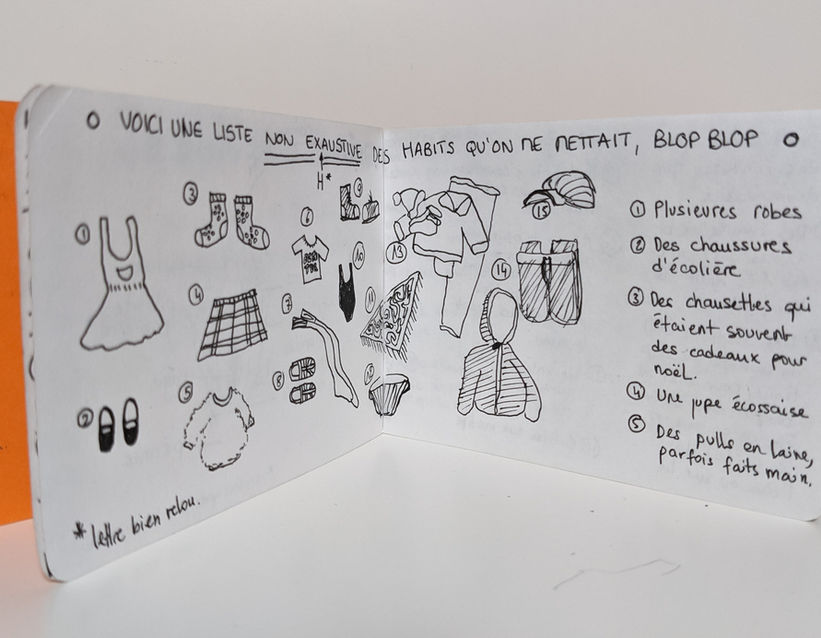 O VOICI UNE LISTE NON EXAUSTIVE DES HABITS QU'ON NE METTAIT, BLOP BLOP O
H*
1
2
3
4
5
6
7
8
9
10
11
12
13
14
15
* lettre bien relou.
① Plusieures robes
② Des chaussures
d'écolière
③ Des chausettes qui
étaient souvent
des cadeaux pour
noël.
④ Une jupe écossaise
⑤ Des pulls en laine,
parfois faits main.